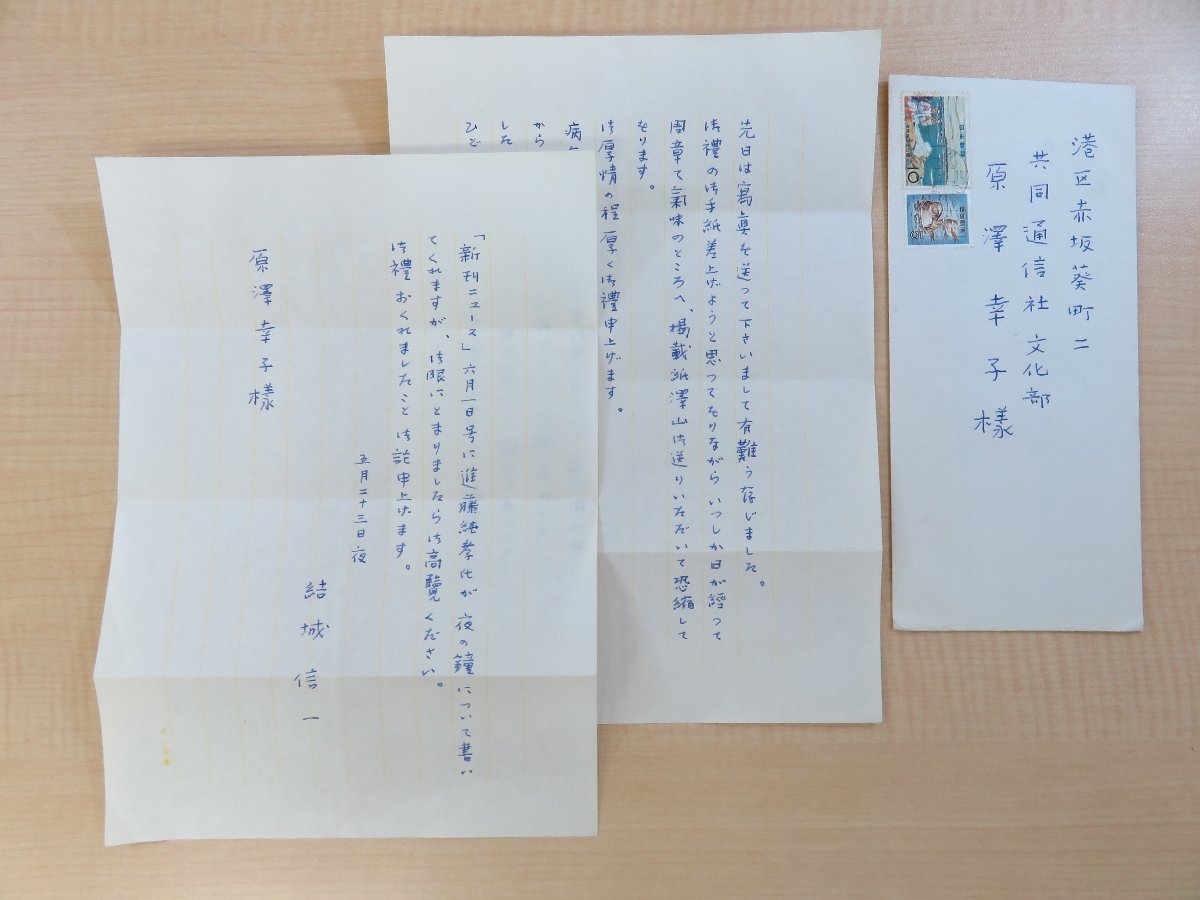 港区赤坂葵町二
共同通信社文化部
原澤幸子様
先日は寫眞を送つて下さいまして有難う存じました。
御禮の御手紙差上げようと思つてをりながらいつしか日が經つて
周章て氣味のところへ、掲載紙澤山御送りいただいて恐縮して
をります。
御厚情の程厚く御禮申上げます。
病
から
した
ひど
「新刊ニュース」六月一日号に進藤純孝氏が夜の鐘について書い
てくれますが、御眼にとまりましたら御高覽ください。
御禮おくれましたこと御詫申上げます。
五月二十三日夜
結城信一
原澤幸子様